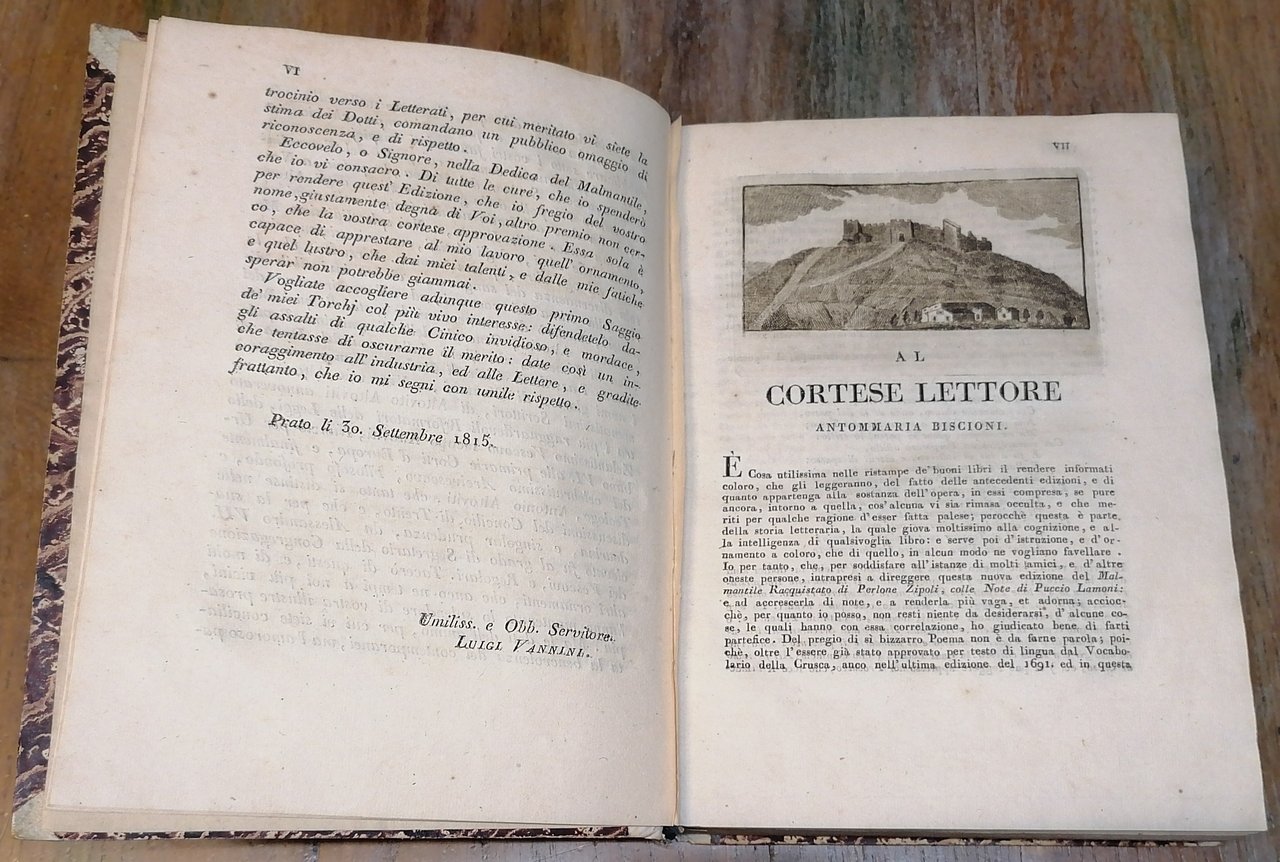 VI
trocinio verso i Letterati, per cui meritato vi siete la
stima dei Dotti, comandano un pubblico omaggio di
riconoscenza, e di rispetto.
Eccovelo, o Signore, nella Dedica del Malmantile,
che io vi consacro. Di tutte le cure, che io spenderò
per rendere quest' Edizione, che io fregio del vostro
nome, giustamente degna di Voi, altro premio non cer-
co, che la vostra cortese approvazione. Essa sola è
capace di apprestare al mio lavoro quell' ornamento,
e quel lustro, che dai miei talenti, e dalle mie fatiche
sperar non potrebbe giammai.
Vogliate accogliere adunque questo primo Saggio
de' miei Torchj col più vivo interesse: difendetelo da-
gli assalti di qualche Cinico invidioso, e mordace,
che tentasse di oscurarne il merito: date così un in-
coraggimento all' industria, ed alle Lettere, e gradite
frattanto, che io mi segni con umile rispetto.
Prato li 30. Settembre 1815.
Umiliss. e Obb. Servitore.
LUIGI VANNINI.
VII
AL
CORTESE LETTORE
ANTOMMARIA BISCIONI.
È Cosa utilissima nelle ristampe de' buoni libri il rendere informati
coloro, che gli leggeranno, del fatto delle antecedenti edizioni, e di
quanto appartenga alla sostanza dell' opera, in essi compresa, se pure
ancora, intorno a quella, cos' alcuna vi sia rimasa occulta, e che me-
riti per qualche ragione d' esser fatta palese; perocchè questa è parte
della storia letteraria, la quale giova moltissimo alla cognizione, e al-
la intelligenza di qualsivoglia libro: e serve poi d' istruzione, e d' or-
namento a coloro, che di quello, in alcun modo ne vogliano favellare.
Io per tanto, che, per soddisfare all' istanze di molti amici, e d' altre
oneste persone, intrapresi a direggere questa nuova edizione del Mal-
mantile Racquistato di Perlone Zipoli, colle Note di Puccio Lamoni:
e ad accrescerla di note, e a renderla più vaga, et adorna; accioc-
chè, per quanto io posso, non resti niente da desiderarsi, d' alcune co-
se, le quali hanno con essa correlazione, ho giudicato bene di farti
partefice. Del pregio di sì bizzarro Poema non è da farne parola; poi-
chè, oltre l' essere già stato approvato per testo di lingua dal Vocabo-
lario della Crusca, anco nell' ultima edizione del 1691. ed in questa